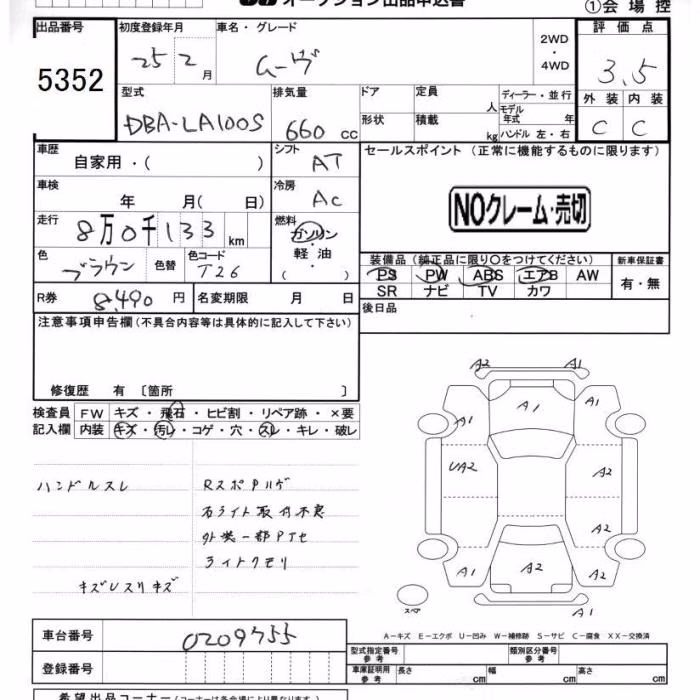 オークション出品申込書
①会場控
出品番号 初度登録年月 車名・グレード 評価点
5352 25年2月 ムーヴ 2WD・4WD 3.5
型式 排気量 ドア 定員 人 ディーラー・並行 外装 内装
DBA-LA100S 660cc 形状 積載 kg モデル年式 年 C C
ハンドル 左・右
車歴 自家用・( ) シフト AT セールスポイント (正常に機能するものに限ります)
車検 年 月( 日) 冷房 AC
NOクレーム・売切
走行 8万0千133km 燃料 ガソリン・軽油・( )
色 ブラウン 色替 色コード T26
装備品 (純正品に限り○をつけてください) 新車保証書
PS PW ABS エアB AW 有・無
SR ナビ TV カワ
R券 8,490円 名変期限 月 日 後日品
注意事項申告欄(不具合内容等は具体的に記入して下さい)
修復歴 有〔箇所 〕
検査員 FW キズ・飛石・ヒビ割・リペア跡・×要
記入欄 内装 キズ・汚レ・コゲ・穴・スレ・キレ・破レ
ハンドルスレ
キズレスリキズ
RスポPハゲ
右ライト取付不良
外装一部PTセ
ライトクモリ
A2 A1
A1 A1 A1
UA2 A2
A2
A1 A2 A1
A1
スペア
A-キズ E-エクボ U-凹み W-補修跡 S-サビ C-腐食 XX-交換済
車台番号 0209755
登録番号
型式指定番号 参考 類別区分番号 参考
車庫証明用 参考 長さ cm 幅 cm 高さ cm
希望出品コーナー(コーナーは各会場により異なります)